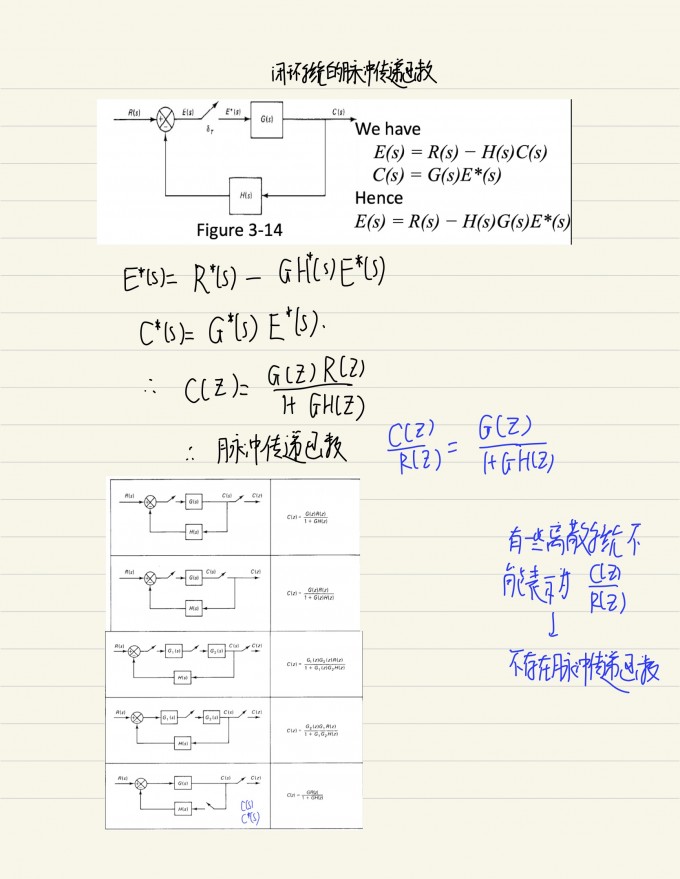 闭环系统的脉冲传递函数
R(s) E(s) E*(s) G(s) C(s)
δT
H(s)
Figure 3-14
We have
E(s) = R(s) − H(s)C(s)
C(s) = G(s)E*(s)
Hence
E(s) = R(s) − H(s)G(s)E*(s)
E*(s) = R*(s) − GH*(s)E*(s)
C*(s) = G*(s) E*(s).
∴ C(Z) = G(Z)R(Z) / 1+GH(Z)
∴ 脉冲传递函数 C(Z)/R(Z) = G(Z) / 1+GH(Z)
R(s) G(s) C(s) C(z)
H(s)
C(z) = G(z)R(z) / 1 + GH(z)
R(s) G(s) C(s) C(z)
H(s)
C(z) = G(z)R(z) / 1 + G(z)H(z)
R(s) G₁(s) G₂(s) C(s) C(z)
H(s)
C(z) = G₁(z)G₂(z)R(z) / 1 + G₁(z)G₂H(z)
R(s) G₁(s) G₂(s) C(s) C(z)
H(s)
C(z) = G₂(z)G₁R(z) / 1 + G₁G₂H(z)
R(s) G(s) C(s) C(z)
H(s)
C(s)
C*(s)
C(z) = GR(z) / 1 + GH(z)
有些离散系统不
能表示为 C(Z)/R(Z)
↓
不存在脉冲传递函数